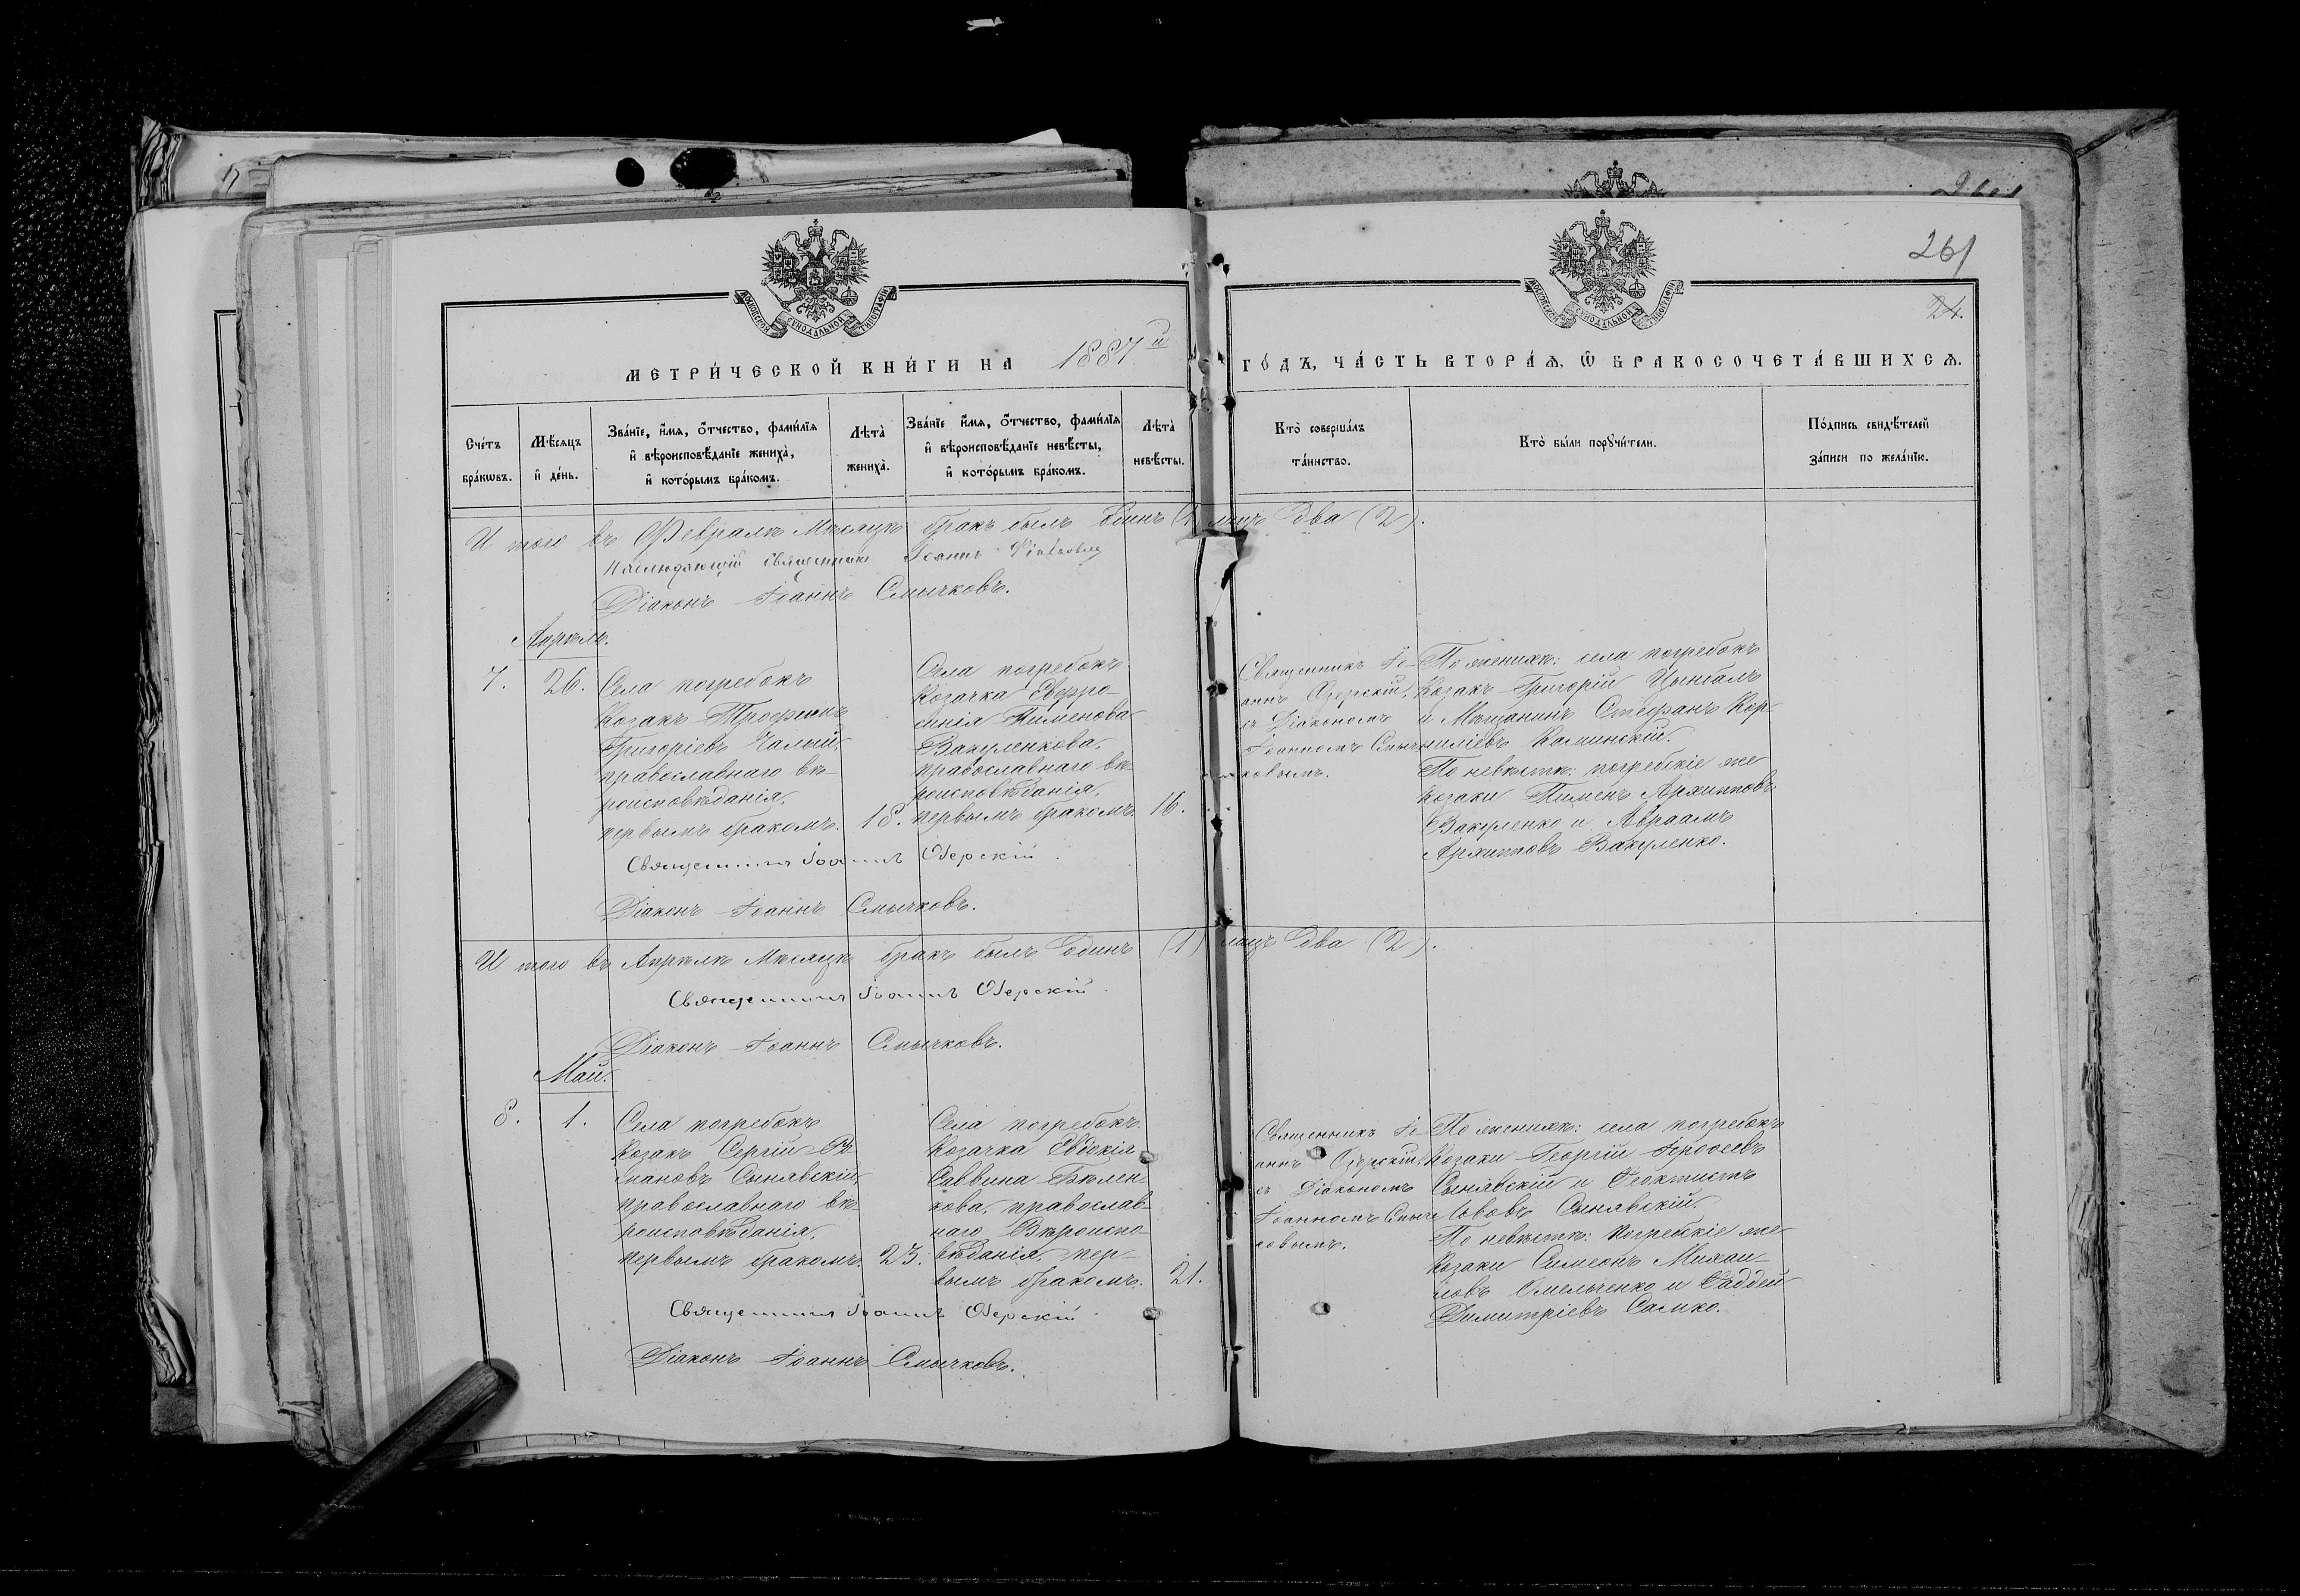 261
24.
МОСКОВСКОЙ СУНОДАЛЬНОЙ ТИПОГРАФІИ
МОСКОВСКОЙ СУНОДАЛЬНОЙ ТИПОГРАФІИ
МЕТРИ́ЧЕСКОЙ КНИ́ГИ НА 1887й ГО́ДЪ, ЧА́СТЬ ВТОРА́Ѧ, Ѽ БРАКОСОЧЕТА́ВШИХСѦ.
Сче́тъ бра́кѡвъ.
Мѣ́сяцъ и҆ де́нь.
Зва́нїе, и҆́мя, ѻ҆́тчество, фами́лїя и҆ вѣроисповѣ́данїе жениха̀, и҆ кото́рымъ бра́комъ.
Лѣта̀ жениха̀.
Зва́нїе и҆́мя, ѻ҆́тчество, фами́лїя и҆ вѣроисповѣ́данїе невѣ́сты, и҆ кото́рымъ бра́комъ.
Лѣта̀ невѣ́сты.
Кто̀ соверша́лъ та́инство.
Кто̀ бы́ли порꙋчи́тели.
По́дпись свидѣ́телей за́писи по жела́нїю.
И того въ Февралѣ Мѣсяцѣ бракъ былъ Одинъ (1) лицъ два (2).
Священникъ Іоаннъ
Діаконъ Іоаннъ Смычковъ.
Апрѣль.
7.
26.
Села погребокъ
Козакъ Трофимъ
Григоріевъ Чалый,
православнаго вѣ-
роисповѣданія,
первымъ бракомъ.
18.
Села погребокъ
Козачка Евфро-
синія Пименова
Вакуленкова,
православнаго вѣ-
роисповѣданія,
первымъ бракомъ.
16.
Священникъ Іо-
аннъ Озерскій,
съ Діакономъ
Іоанномъ Смыч-
ковымъ.
По женихѣ: села погребокъ
Козакъ Григорій Цымбалъ
и Мѣщанинъ Стефанъ Кор-
ниліевъ Каминскій.
По невѣстѣ: погребскіе же
Козаки Пименъ Архиповъ
Вакуленко и Авраамъ
Архиповъ Вакуленко.
Священникъ Іоаннъ Озерскій.
Діаконъ Іоаннъ Смычковъ.
И того въ Апрѣлѣ Мѣсяцѣ бракъ былъ Одинъ (1) лицъ два (2).
Священникъ Іоаннъ Озерскій.
Діаконъ Іоаннъ Смычковъ.
Май.
8.
1.
Села погребокъ
Козакъ Сергій
Сынявскій,
православнаго вѣ-
роисповѣданія,
первымъ бракомъ.
23.
Села погребокъ
Козачка Евдокія
Саввина Бѣлен-
кова, православ-
наго Вѣроиспо-
вѣданія, пер-
вымъ бракомъ.
21.
Священникъ Іо-
аннъ Озерскій,
съ Діакономъ
Іоанномъ Смыч-
ковымъ.
По женихѣ: села погребокъ
Козаки Георгій
Сынявскій и Феоктистъ
Львовъ Сынявскій.
По невѣстѣ: Погребскіе же
Козаки Симеонъ Михаи-
ловъ Омельченко и Фаддей
Димитріевъ Самко.
Священникъ Іоаннъ Озерскій.
Діаконъ Іоаннъ Смычковъ.